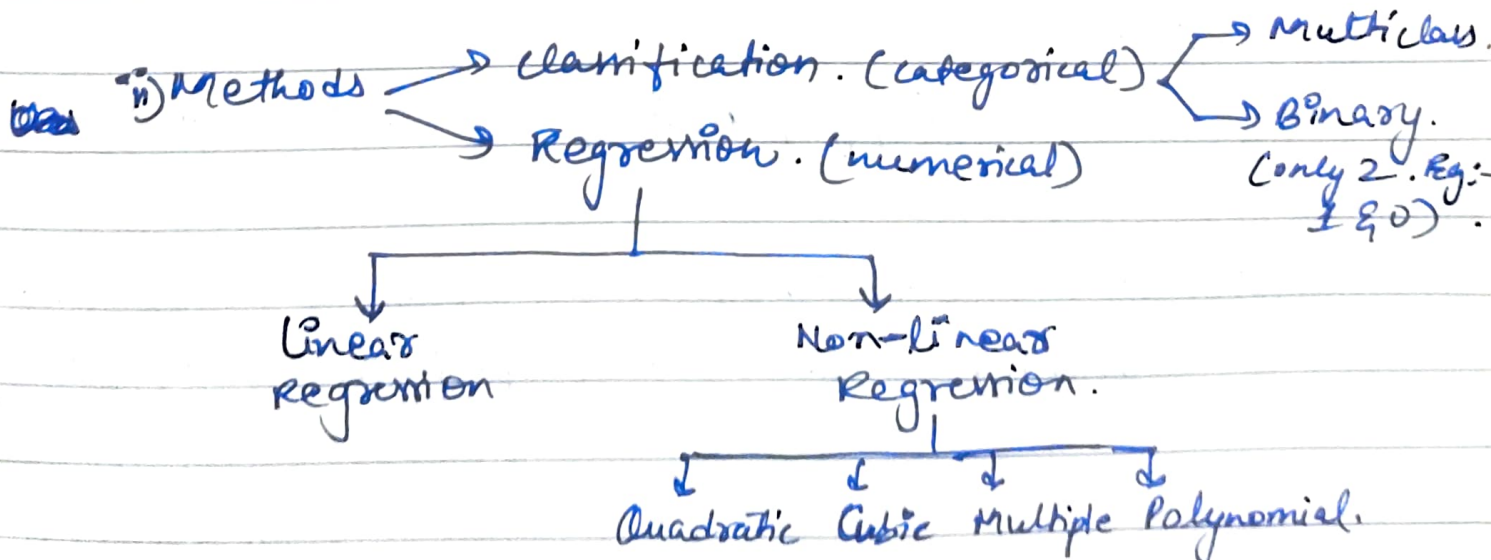 ii) Methods → Classification. (categorical) → Multiclass.
→ Binary.
(only 2. Eg:-
1 & 0).
→ Regression. (numerical)
Linear Regression
Non-linear Regression.
Quadratic Cubic Multiple Polynomial.